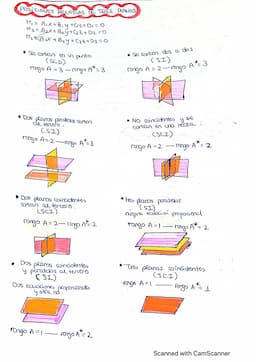 POSICIONES RELATIVAS DE TRES PLANOS
π₁ = A₁x+B₁y+C₁z+D₁=0
π₂ = A₂x+B₂y+C₂z+D₂=0
π₃ = A₃x+B₃y+C₃z+D₃=0
• Se cortan en un punto
(SCD)
rango A=3 — rango A*=3
• Se cortan dos a dos
(SI)
rango A=2 — rango A*=3
• Dos planos paralelos cortan
al tercero
(SI)
rango A=2 — rango A*=3
• No coincidentes y se
cortan en una recta
(SCI)
rango A=2 — rango A*=2
• Dos planos coincidentes
cortan al tercero
(SCI)
rango A=2 — rango A*=2
• Tres planos paralelos
(SI)
ninguna ecuación proporcional
rango A=1 — rango A*=2
• Dos planos coincidentes
y paralelos al tercero
(SI)
Dos ecuaciones proporcionales
rango A=1 — rango A*=2
• Tres planos coincidentes
(SCI)
rango A=1 — rango A*=1
Scanned with CamScanner